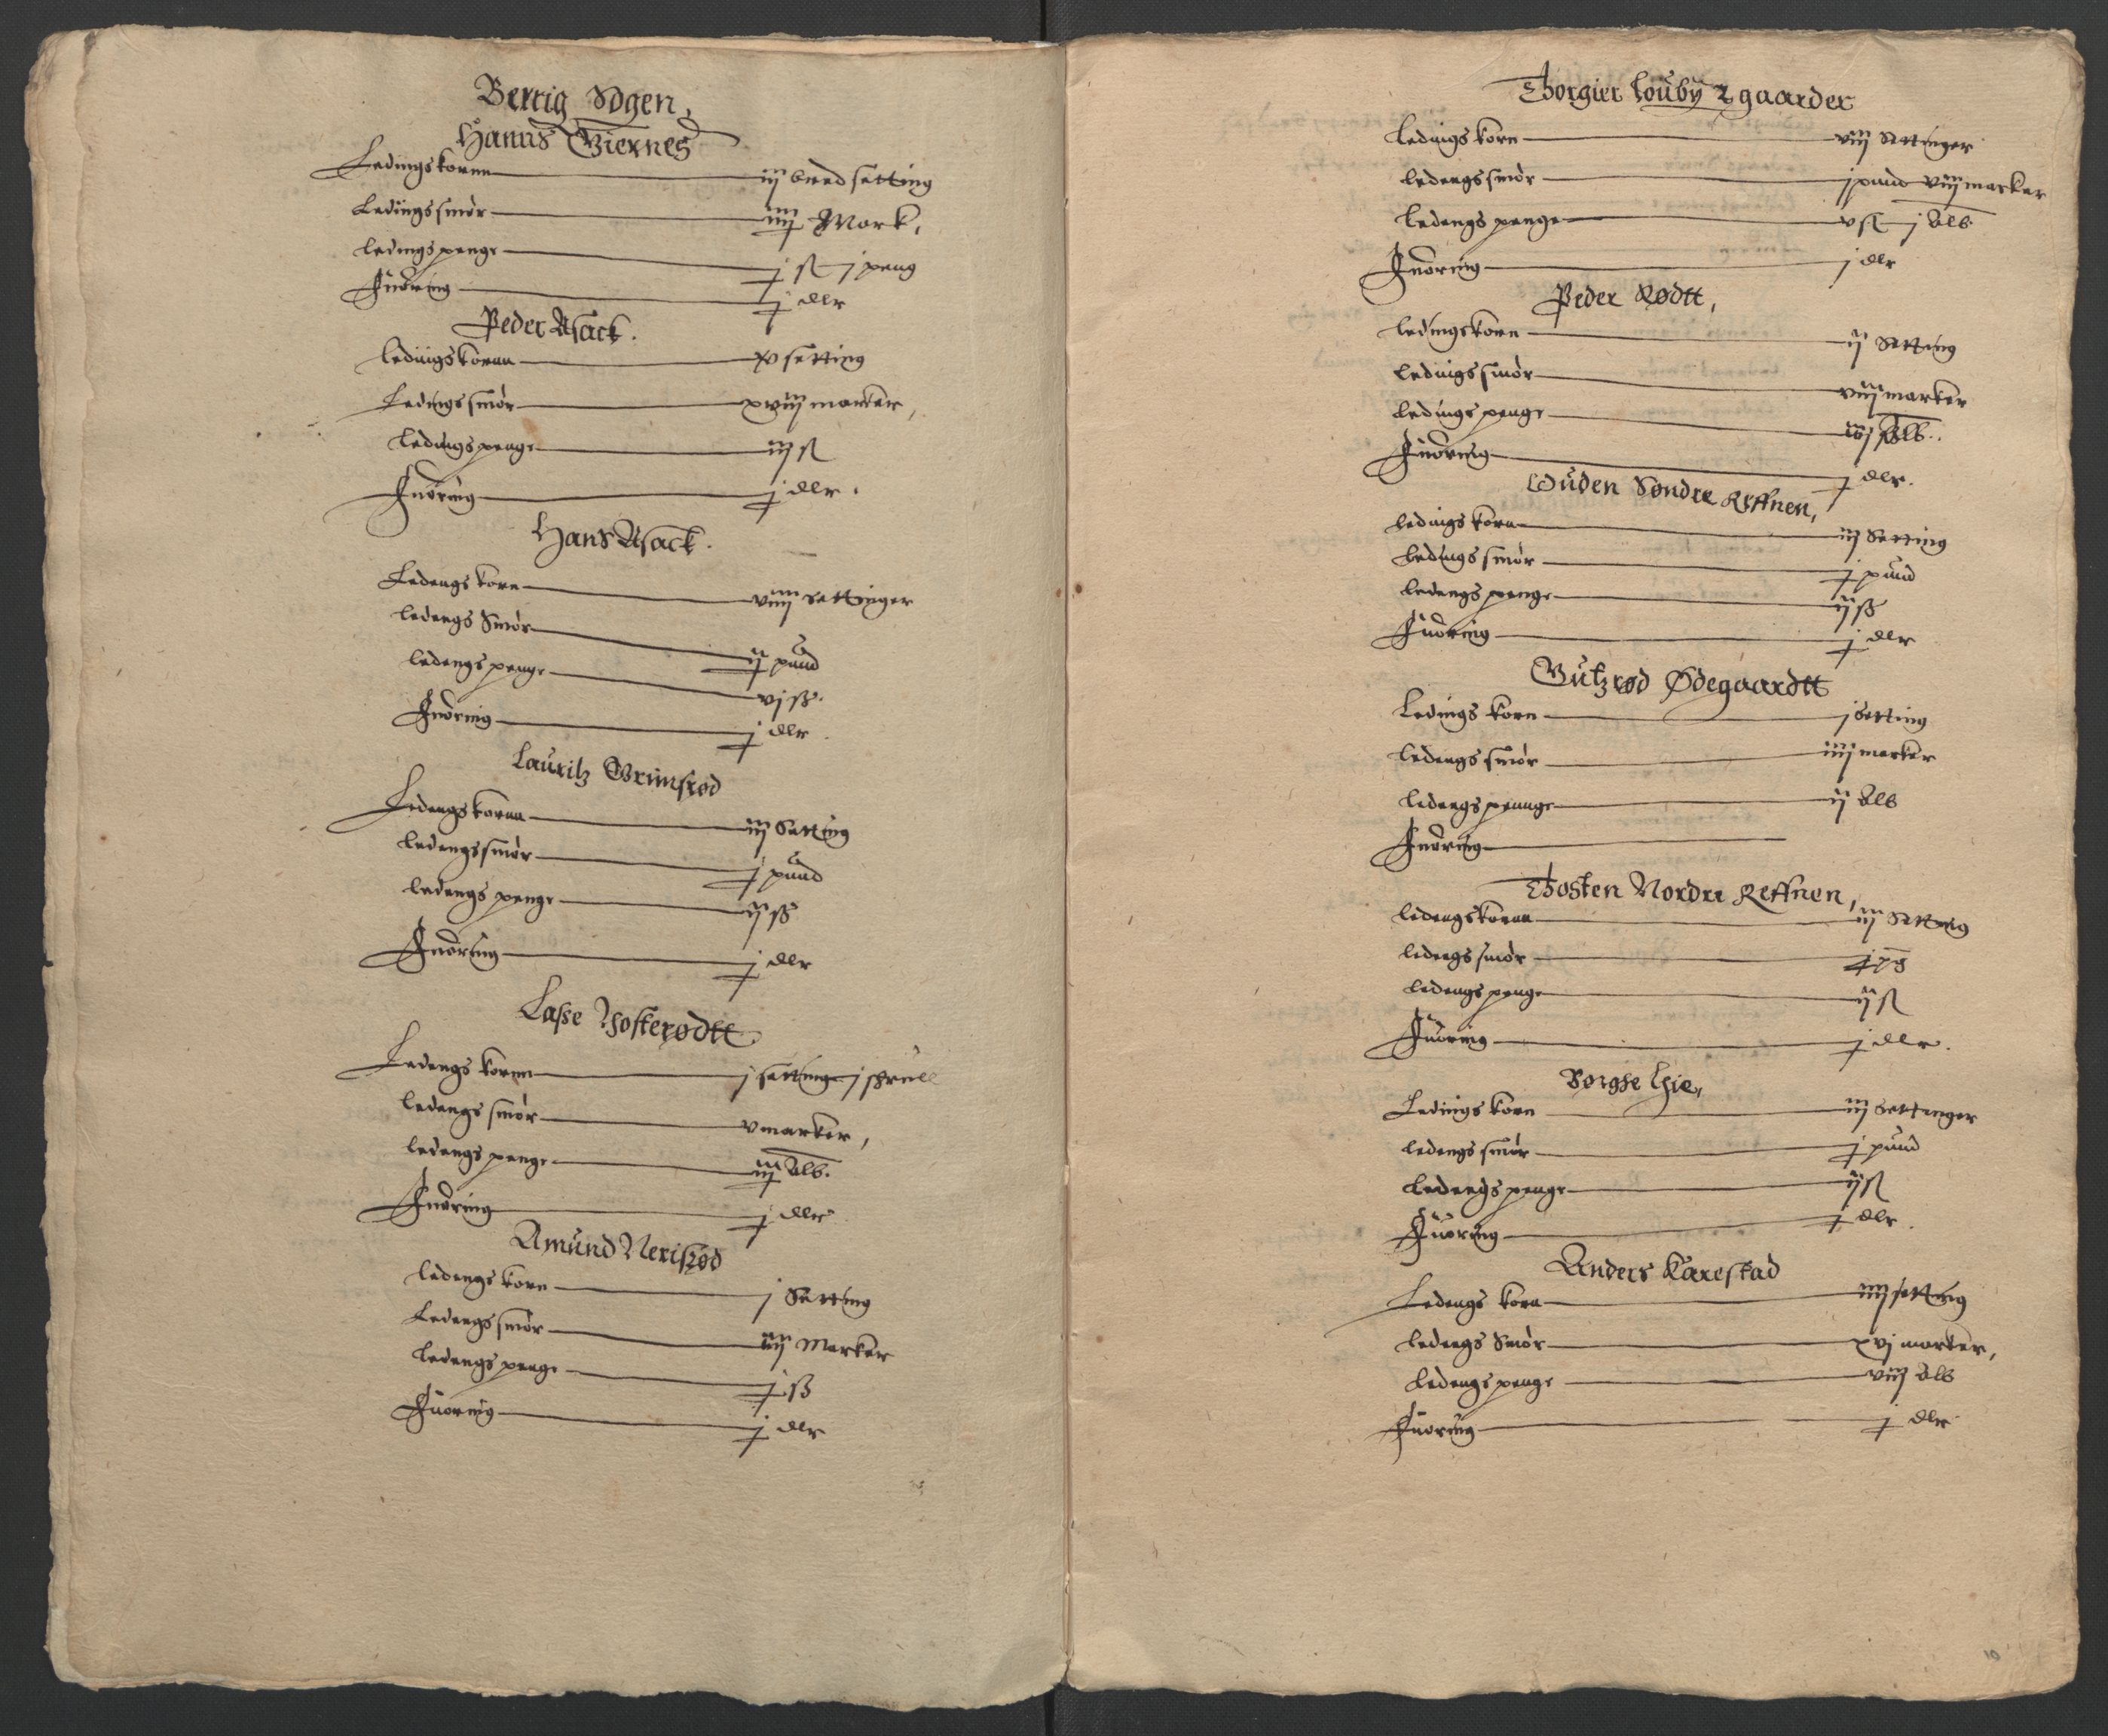 Berrig Sogen,
Hanns Biernes
Ledingskornn — iij bred setting
Ledings smör — iiij Mark,
ledings penge — j ß j peng
Fnöring — j dlr
Peder Asack.
ledingskornn — xv setting
Ledings smör — xviij marker,
ledings penge — iij ß
Fnöring — j dlr.
Hans Asack.
Ledengs korn — viiij settinger
ledengs Smör — ij pund
ledengs penge — vj ß.
Fnöring — j dlr.
Lauritz Grimsrød
Ledengskornn — iij Setting
ledengs smör — j pund
ledengs penge — ij ß
Fnöring — j dlr
Laße Hosterødtt.
Ledengs kornn — j setting j
ledengs smör — v marker,
ledengs penge — iij alb.
Fnöring — j dlr
Amund Nerisrød
ledengs korn — j Setting
Ledengs smör — iiij Marker
ledengs penge — j ß
Fuoring — j dlr
Thorgier Louby 2 gaarder
Ledings korn — viij Settinger
ledengs smör — j pund viij marker
ledengs penge — v ß j alb
Fnöring — j dlr
Peder Rødtt,
ledingskorn — ij Setting
ledings smör — viij marker
ledings penge — alb.
Fnöring — j dlr.
Ouden Søndre Reffnen,
ledings korn — iij Setting
ledings smör — j pund
ledengs penge — ij ß
Fuöring — j dlr
Butzrød Ødegaardtt
Ledings korn — j setting
ledengs smör — iiij marker
ledengs pennge — ij alb
Fnöring —
Thosten Nordre Reffnen,
ledengskornn — iij Setting
ledengs smör — j pd
ledengs penge — ij ß
Fuoring — j dlr.
Borgse Hie,
Ledings korn — iij settinger
ledengs smör — j pund
Ledengs penge — ij ß
Fuoring — j dlr.
Anders Karestad
Ledengs korn — iiij setting
ledengs Smör — xvj marker,
ledengs penge — viij alb
Fuoring — j dlr
10